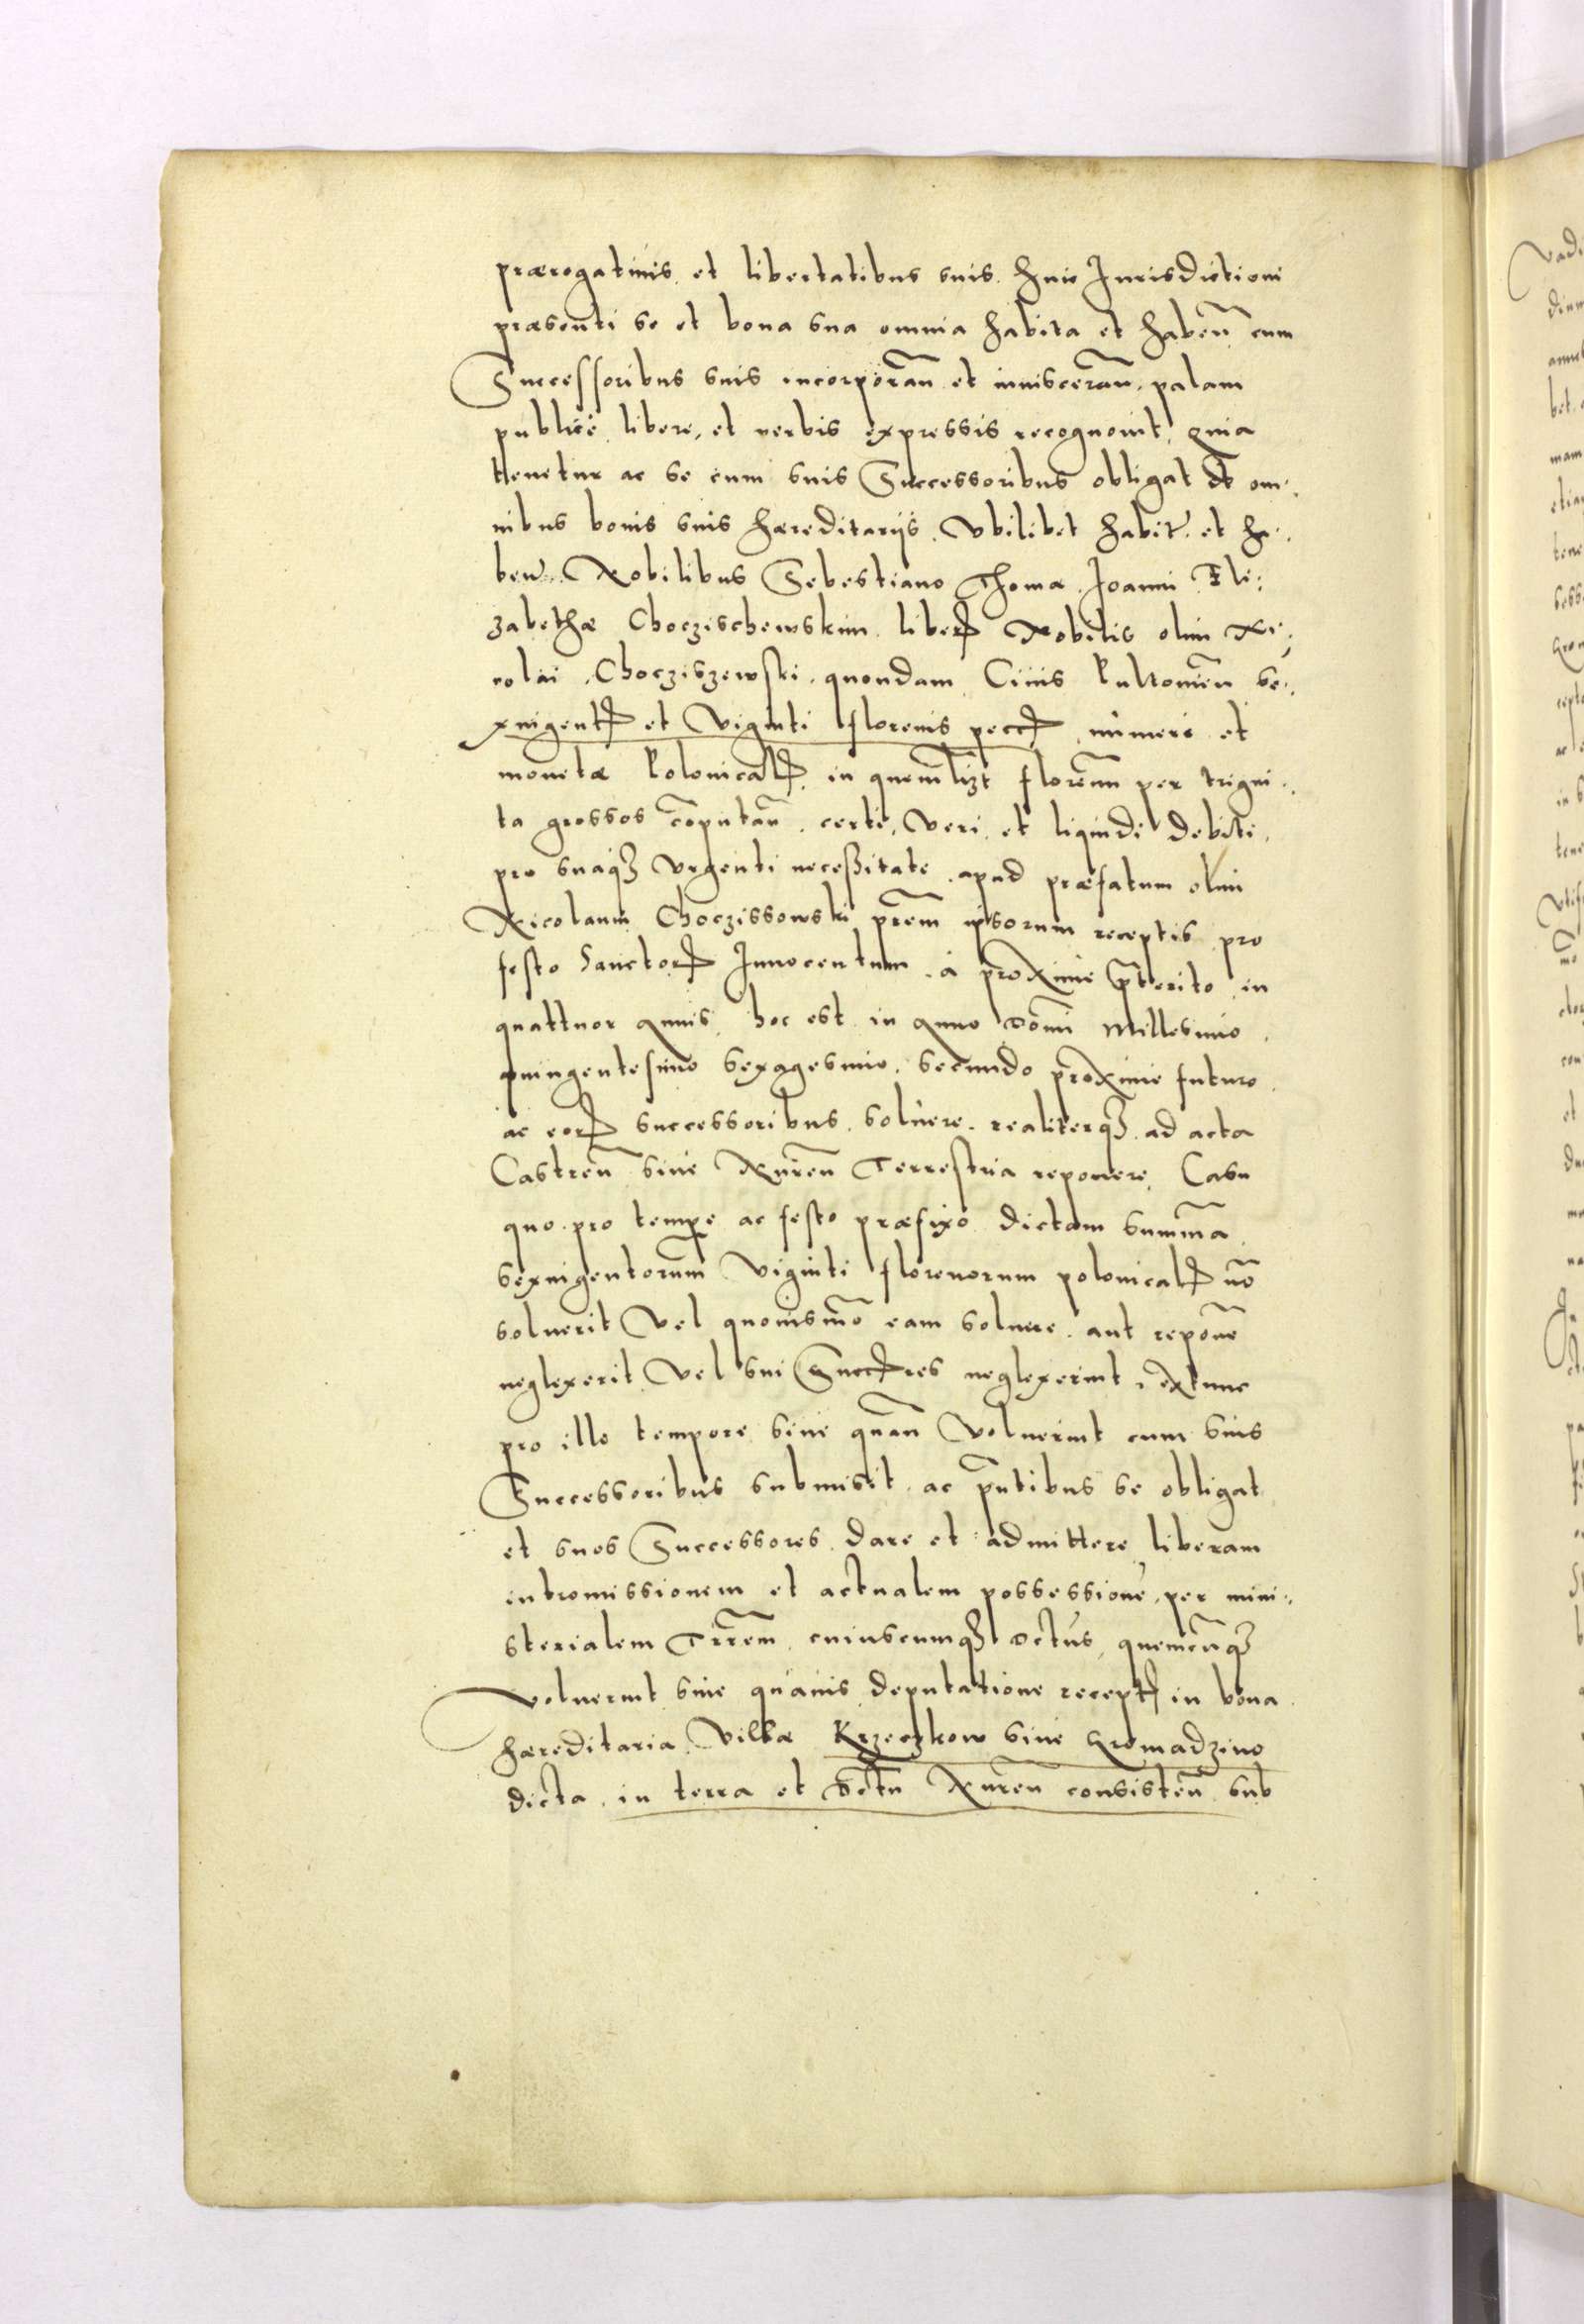 prærogatiuis et libertatibus suis huic Jurisdictioni
præsenti se et bona sua omnia habita et habeñ cum
Successoribus suis incorporãn et inuiscerãn palam
publicè libere, et verbis expressis recognouit, quia
tenetur ac se cum suis Successoribus obligat de om-
nibus bonis suis hæreditarijs Vbilibet habit et ha-
ben Nobilibus Sebestiano Thomæ Joanni Eli-
zabethæ Choczischewskim liber Nobilis olim Ni-
colai Chocziszewski quondam Ciuis Pultouień se-
xingent et Viginti florenis pecc numeri et
monetæ Polonical in quemlizt florenũ per trigin-
ta grossos cõputãn certi, Veri et liquidi debiti
pro suaq3 Vrgenti necessitate apud præfatum olim
Nicolaum Choczissowski prẽm ipsorum receptis pro
festo Sanctor Innocentum à proxime p̃terito in
quattuor annis hoc est in anno Dõmi Millesimo
quingentesimo sexagesimo secundo proxime futuro
ac eor successoribus soluere realiterq3 ad acta
Castreñ siue Nureñ Terrestria reponere, Casu
quo pro tempe ac festo præfixo dictam summã
sexingentorum Viginti florenorum polonical nõ
soluerit Vel quouismõ eam soluere aut reponẽ
neglexerit Vel sui Succres neglexerint, extunc
pro illo tempore siue quãn Voluerint cum suis
Successoribus submisit ac p̃ntibus se obligat
et suos Successores dare et admittere liberam
intromissionem et actualem possessionẽ per mini-
sterialem Trrẽm cuiuscumq3 Dctus quemcũq3
Voluerint siue quauis deputatione recept in bona
hæreditaria Villæ Krzeczkow siue Gromadzino
dicta in terra et Dctu Nureñ consisteñ sub